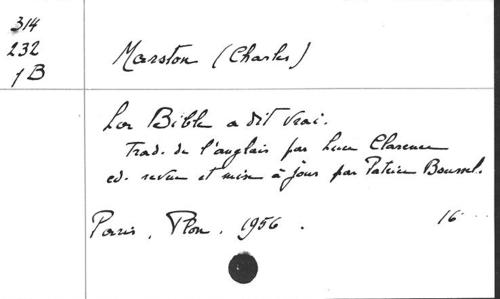 314
232
1 B
Marston (Charles)
La Bible a dit vrai.
Trad. de l'anglais par Luce Clarence
ed. revue et mise à jour par Patrice Boussel.
Paris, Plon, 1956. 16